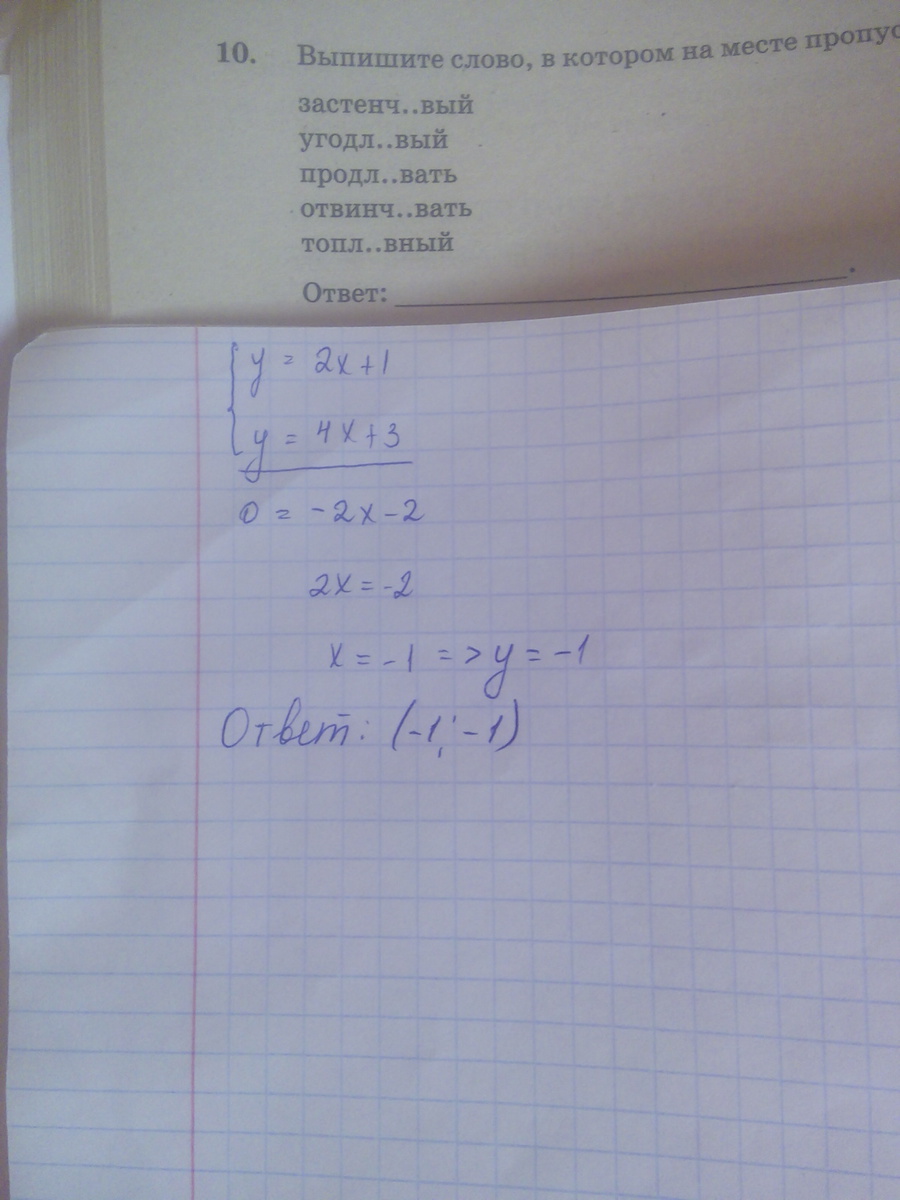 10. Выпишите слово, в котором на месте
застенч..вый
угодл..вый
продл..вать
отвинч..вать
топл..вный
Ответ: ___.
y = 2x+1
y = 4x+3
0 = -2x-2
2x = -2
x = -1 => y = -1
Ответ: (-1; -1)